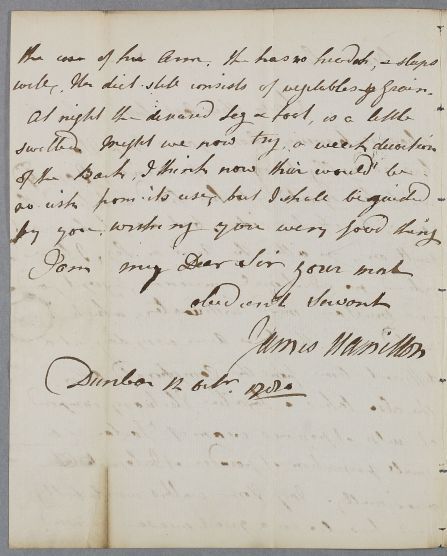 the case of her Arm. He has no headach, & sleeps
well, Her diet still consists of vegetables & grain.
At night the diseased leg & foot, is a little
swelled Might we now try, a weak decoction
of the Bark, I think now their would be
no risk from its use, but I shall be guided
by you. wishing you every good thing
I am my Dear Sir your most
obedient Servant
James Hamilton
Dunbar 12 octr.